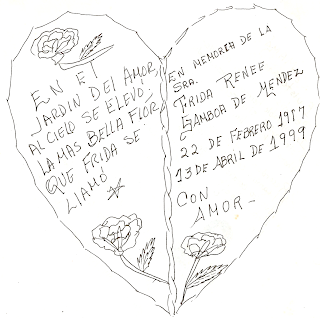 EN El
JARDIN DEl AMOR,
Al CIElO SE ELEVÓ
LA MAS BELLA FLOR,
QUE FRIDA SE
LlAMÓ
EN MEMORIA DE LA
SRA.
FRIDA RENEE
GAMBOA DE MENDEZ
22 DE FEBRERO 1917
13 DE ABRIL DE 1999
CON
AMOR -